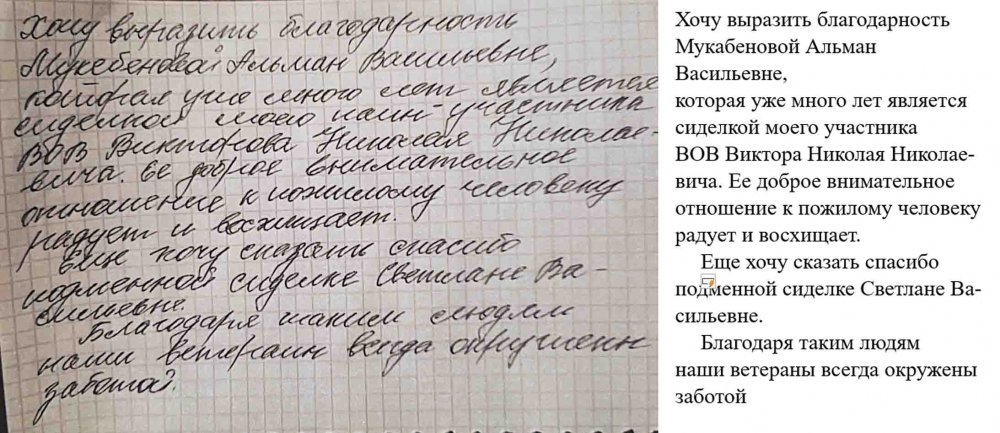 Хочу выразить благодарности
Мукебеновой Альман Васильевне,
которая уже много лет является
сиделкой моего папы участника
ВОВ Викторова Николая Николае-
вича. Ее доброе внимательное
отношение к пожилому человеку
радует и восхищает.
Еще хочу сказать спасибо
подменной сиделке Светлане Ва-
сильевне.
Благодаря таким людям
наши ветераны всегда окружены
заботой.
Хочу выразить благодарность
Мукабеновой Альман
Васильевне,
которая уже много лет является
сиделкой моего участника
ВОВ Виктора Николая Николае-
вича. Ее доброе внимательное
отношение к пожилому человеку
радует и восхищает.
Еще хочу сказать спасибо
подменной сиделке Светлане Ва-
сильевне.
Благодаря таким людям
наши ветераны всегда окружены
заботой